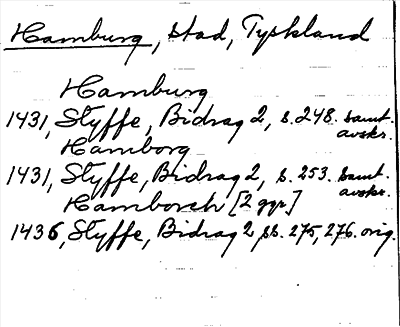 Hamburg, stad, Tyskland
Hamburg
1431, Styffe, Bidrag 2, s. 248. samt. avskr.
Hamborg
1431, Styffe, Bidrag 2, s. 253. samt. avskr.
Hamborch [2 ggr]
1436, Styffe, Bidrag 2, ss. 275, 276. orig.